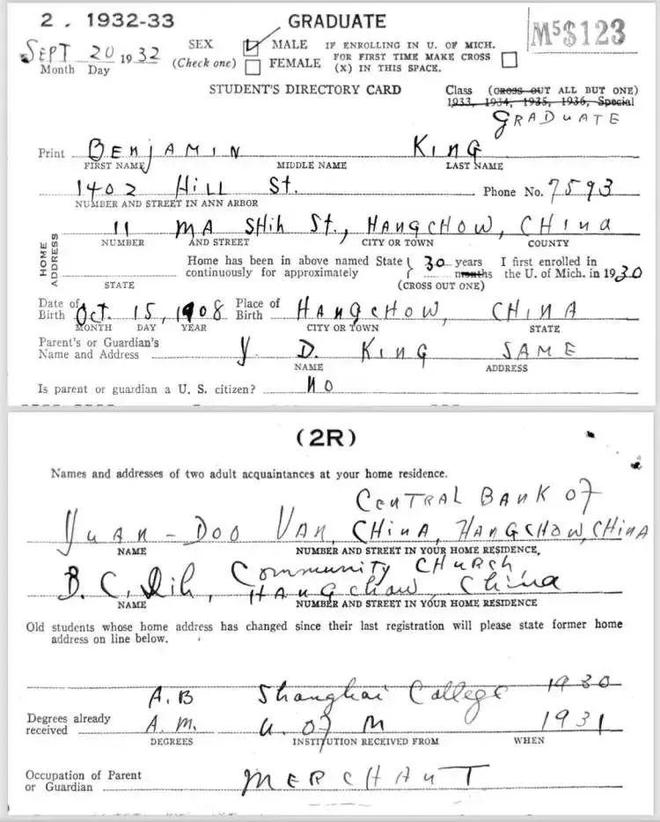 2 . 1932-33
GRADUATE
M5$123
SEPT 20 1932
Month Day
SEX
(Check one)
MALE
FEMALE
IF ENROLLING IN U. OF MICH.
FOR FIRST TIME MAKE CROSS
(X) IN THIS SPACE.
STUDENT'S DIRECTORY CARD
Class (CROSS OUT ALL BUT ONE)
1933, 1934, 1935, 1936, Special
GRADUATE
Print BENJAMIN KING
FIRST NAME MIDDLE NAME LAST NAME
1402 Hill St. Phone No. 7593
NUMBER AND STREET IN ANN ARBOR
HOME ADDRESS
11 MA SHih St., HANGCHOW, CHINA
NUMBER AND STREET CITY OR TOWN COUNTY
Home has been in above named State 30 years I first enrolled in
continuously for approximately months the U. of Mich. in 1930
STATE (CROSS OUT ONE)
Date of Birth Oct. 15, 1908 Place of Birth HANGCHOW, CHINA
MONTH DAY YEAR CITY OR TOWN STATE
Parent's or Guardian's
Name and Address Y D. KING SAME
NAME ADDRESS
Is parent or guardian a U. S. citizen? NO
(2R)
Names and addresses of two adult acquaintances at your home residence.
CENTRAL BANK OF
YUAN-DOO VAN, CHINA, HANGCHOW, CHINA
NAME NUMBER AND STREET IN YOUR HOME RESIDENCE,
Community CHURCH,
B. C. Dih, HANGchow, China
NAME NUMBER AND STREET IN YOUR HOME RESIDENCE
Old students whose home address has changed since their last registration will please state former home
address on line below.
A.B Shanghai College 1930
Degrees already
received A.M. U. of M 1931
DEGREES INSTITUTION RECEIVED FROM WHEN
Occupation of Parent
or Guardian MERCHANT